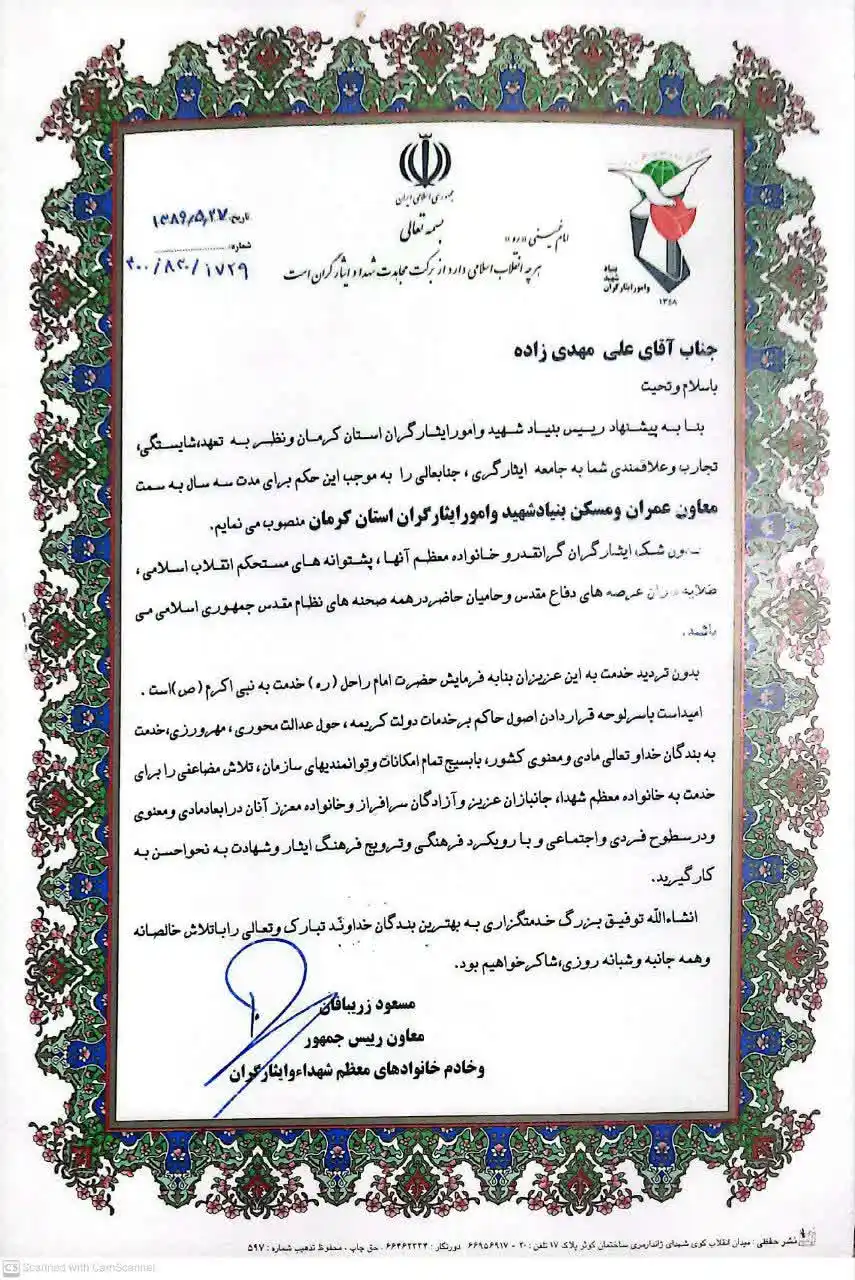 جمهوری اسلامی ایران
بسمه تعالی
تاریخ: ۱۳۸۹/۵/۲۷
شماره:
۴۰۰/۸۴۰/۱۷۲۹
امام خمینی «ره»
هر چه انقلاب اسلامی دارد از برکت مجاهدت شهدا و ایثارگران است
بنیاد
شهید
وامور ایثارگران
۱۳۵۸
جناب آقای علی مهدی زاده
باسلام وتحیت
بنا به پیشنهاد رییس بنیاد شهید وامورایثارگران استان کرمان ونظر به تعهد،شایستگی،
تجارب وعلاقمندی شما به جامعه ایثارگری ، جنابعالی را به موجب این حکم برای مدت سه سال به سمت
معاون عمران ومسکن بنیادشهید وامورایثارگران استان کرمان منصوب می نمایم.
بدون شک، ایثارگران گرانقدرو خانواده معظم آنها ، پشتوانه های مستحکم انقلاب اسلامی ،
طلایه داران عرصه های دفاع مقدس وحامیان حاضردرهمه صحنه های نظام مقدس جمهوری اسلامی می
باشند .
بدون تردید خدمت به این عزیزان بنابه فرمایش حضرت امام راحل (ره) خدمت به نبی اکرم (ص)است .
امیداست باسرلوحه قراردادن اصول حاکم برخدمات دولت کریمه ، حول عدالت محوری ، مهرورزی،خدمت
به بندگان خداو تعالی مادی ومعنوی کشور، بابسیج تمام امکانات وتوانمندیهای سازمان ، تلاش مضاعفی را برای
خدمت به خانواده معظم شهدا، جانبازان عزیز وآزادگان سرافراز وخانواده معزز آنان درابعادمادی ومعنوی
ودرسطوح فردی واجتماعی و با رویکرد فرهنگی وترویج فرهنگ ایثار وشهادت به نحواحسن به
کارگیرید.
انشاءالله توفیق بزرگ خدمتگزاری به بهترین بندگان خداوند تبارک وتعالی راباتلاش خالصانه
وهمه جانبه وشبانه روزی،شاکرخواهیم بود.
مسعود زریبافان
معاون رییس جمهور
وخادم خانوادهای معظم شهداءوایثارگران
نشر حفظی : میدان انقلاب کوی شهدای ژاندارمری ساختمان کوثر پلاک ۱۷ تلفن : ۲۰ - ۶۶۹۵۶۹۱۷ دورنگار : ۶۶۴۶۲۲۲۴ . حق چاپ ، محفوظ تذهیب شماره : ۵۹۷
CS Scanned with CamScanner